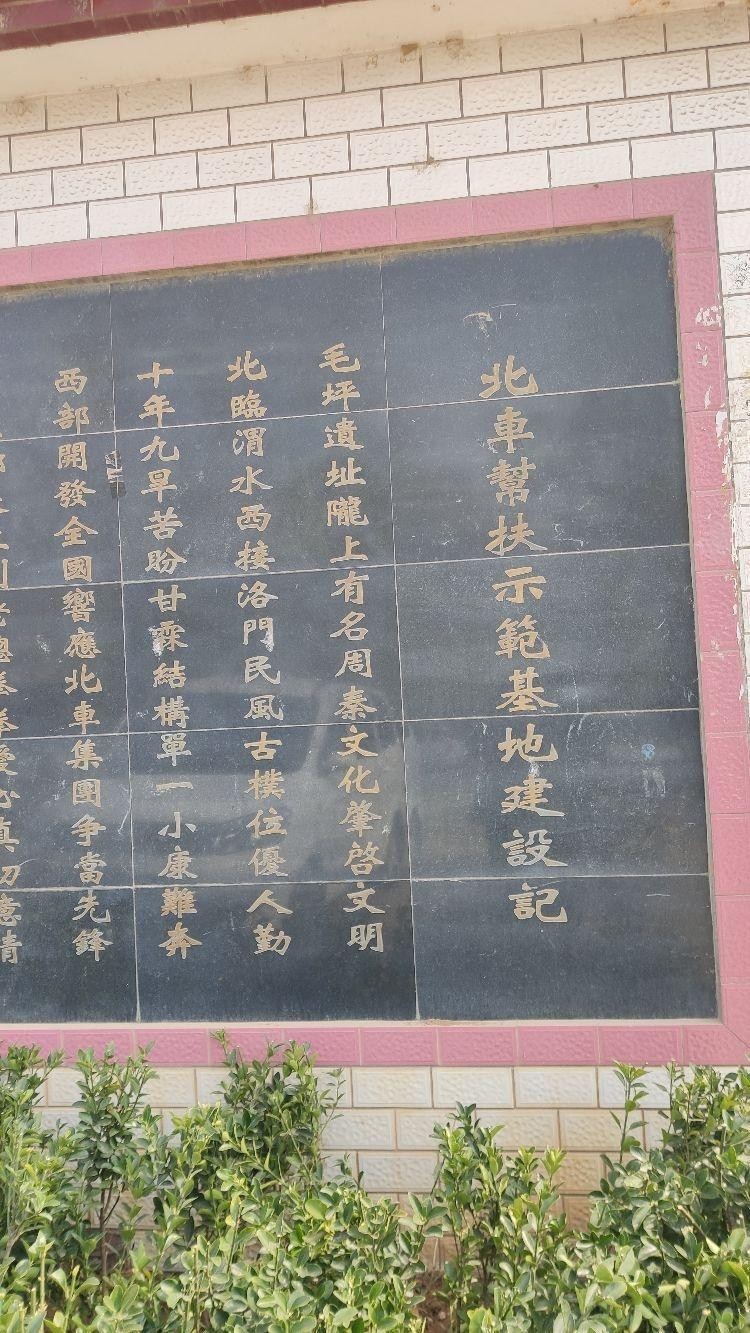 北車幫扶示範基地建設記
毛坪遺址隴上有名周秦文化肇啓文明
北臨渭水西接洛門民風古樸位優人勤
十年九旱苦盼甘霖結構單一小康難奔
西部開發全國響應北車集團争當先鋒